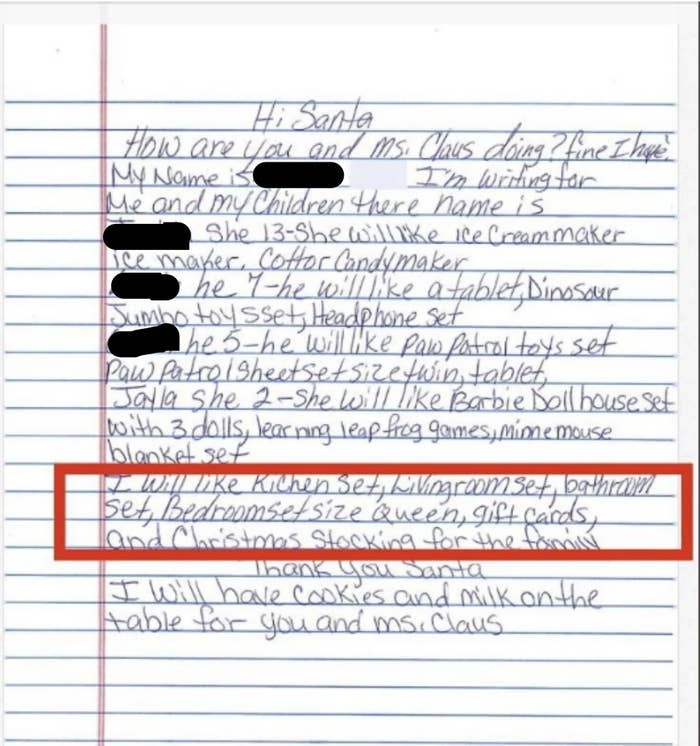 Hi Santa
How are you and ms. Claus doing? fine I hope.
My Name is I'm writing for
Me and my Children there name is
She 13-She will like ice Cream maker
ice maker, Cottor Candy maker
he 7-he will like a tablet, Dinosaur
Jumbo toysset, Headphone set
he 5-he will like Paw Patrol toys set
Paw Patrol Sheet set size twin, tablet,
Jaylla She 2-She will like Barbie Doll house set
with 3 dolls, learning leap frog games, minnemouse
blanket set
I will like Kichen set, Livingroom set, bathroom
set, Bedroomset size Queen, gift cards,
and Christmas Stocking for the family
Thank You Santa
I Will have Cookies and milk on the
table for you and ms. Claus